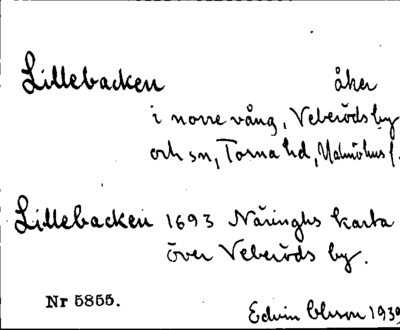 Lillebacken åker
i norre vång, Veberöds by
och sn, Torna hd, Malmöhus l.
Lillebacken 1693 Näringhs karta
över Veberöds by.
Nr 5855.
Edvin Olsson 1939